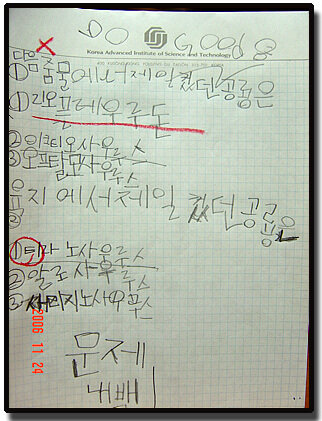 DO GO임용
Korea Advanced Institute of Science and Technology
다음
① 중물에서제일컸던공룡은
① 리오플레우루돈
② 이크티오사우루스
③ 오프탈모사우루스
육지에서제일컸던공룡은
① 티라노사우루스
② 알로사우루스
③ 사우루스
문제
내백
2006 11 24